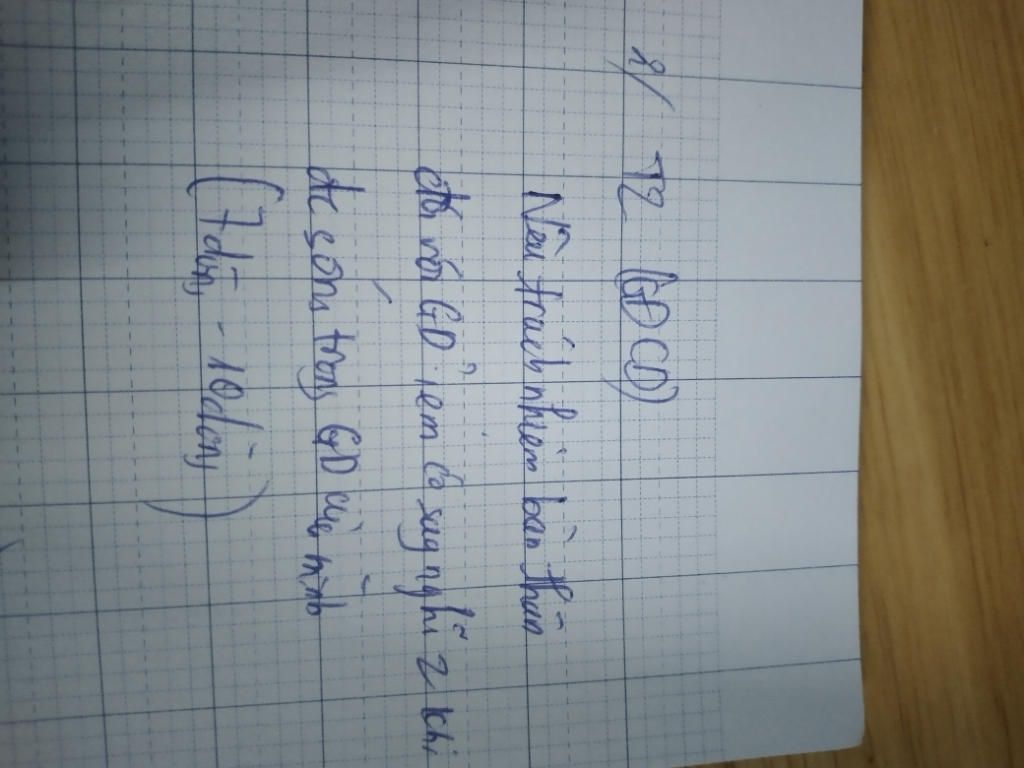 2/ T2 (GDCD)
Nêu trách nhiệm bản thân
đối với GD, em có suy nghĩ z khi
đc sống trong GD của mình
(7 dòng - 10 dòng)